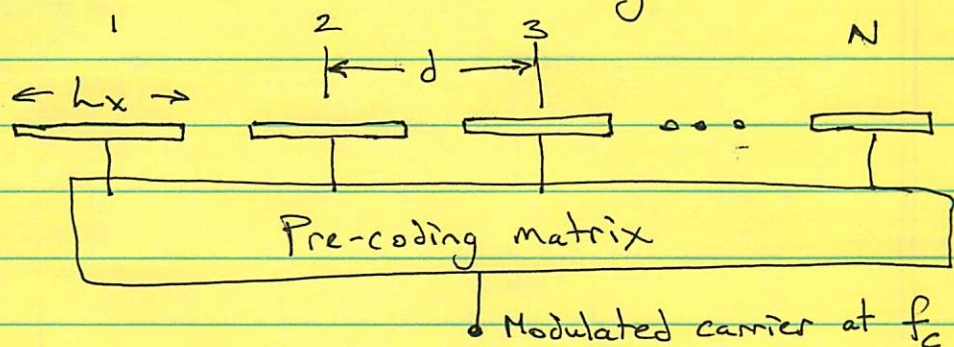 1 2 3 N
← d →
← Lx →
Pre-coding matrix
Modulated carrier at fc